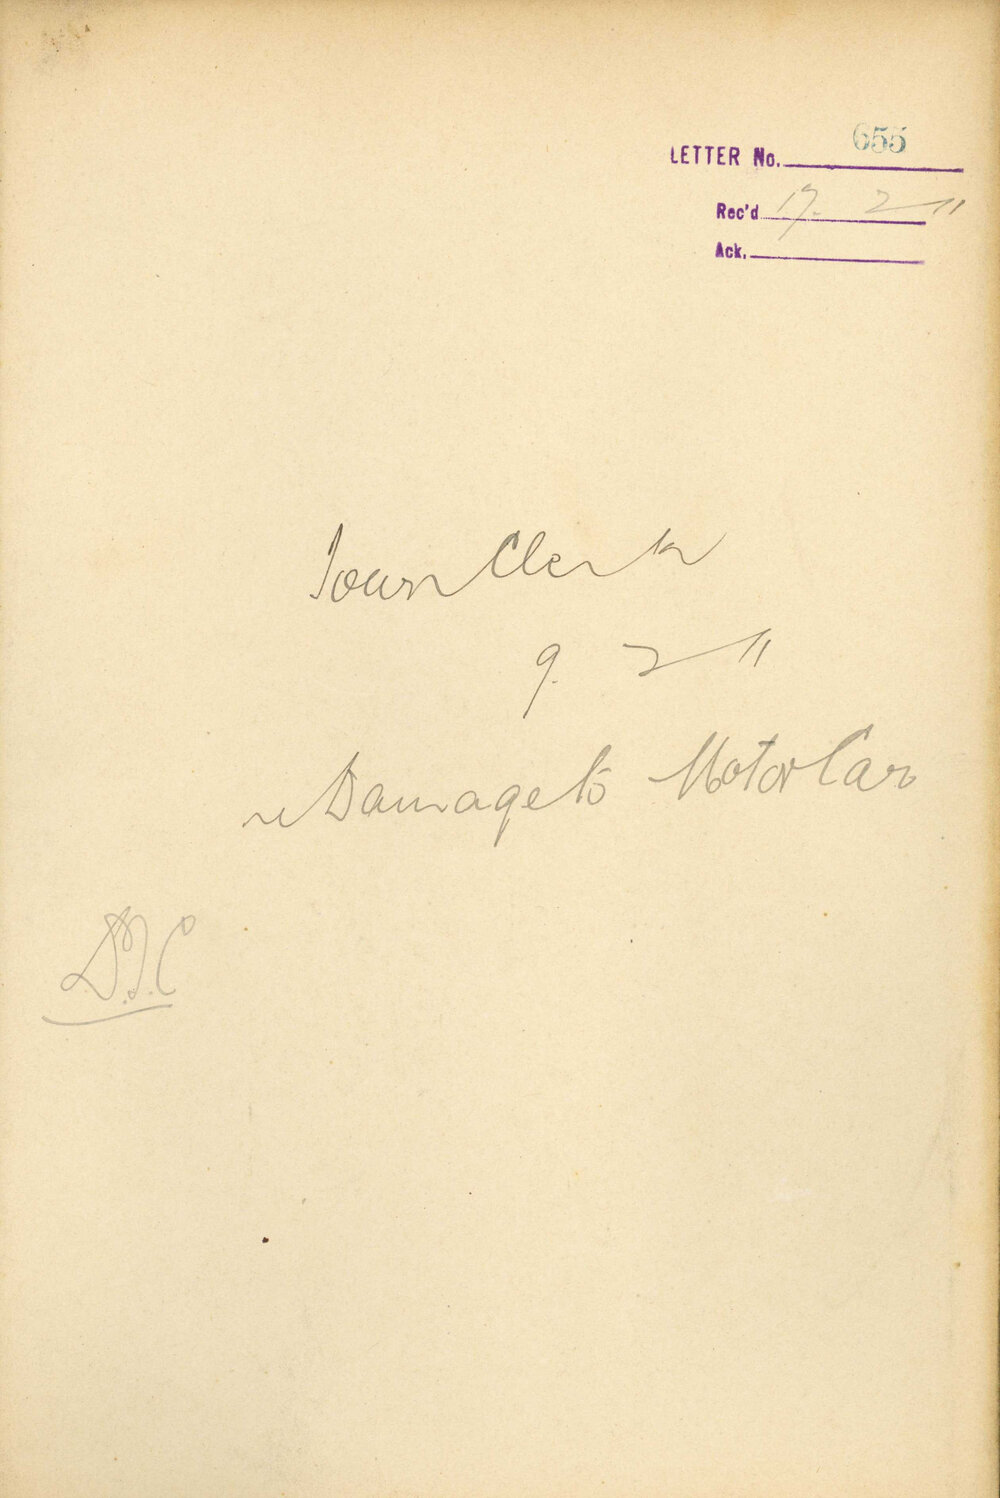 LETTER No. 655
Rec'd 17. 2 11
Ack.
Town Clerk
9. 2 11
re Damage to Motor Car
D.J.C